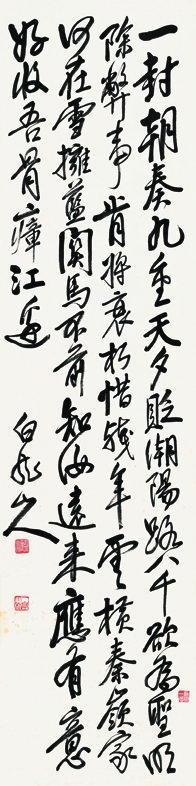 一封朝奏九重天夕貶潮陽路八千欲為聖明
除弊事肯將衰朽惜殘年雲橫秦嶺家
何在雪擁藍關馬不前知汝遠來應有意
好收吾骨瘴江邊
白龍山人